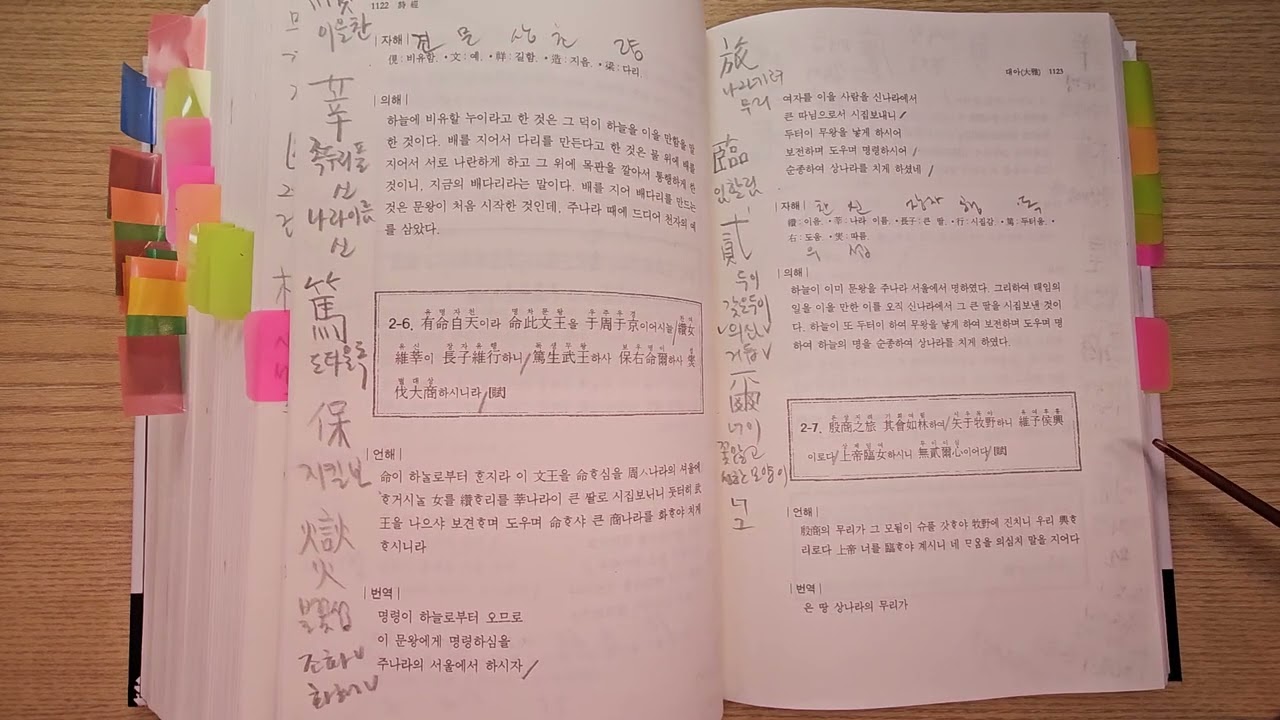 1122 詩 經
이을찬
| 자해 | 견 문 상 조 량
俔 : 비유함. • 文 : 예. • 祥 : 길함. • 造 : 지음. • 梁 : 다리.
| 의해 |
하늘에 비유할 누이라고 한 것은 그 덕이 하늘을 이을 만함을 말
한 것이다. 배를 지어서 다리를 만든다고 한 것은 물 위에 배를
지어서 서로 나란하게 하고 그 위에 목판을 깔아서 통행하게 한
것이니, 지금의 배다리라는 말이다. 배를 지어 배다리를 만드는
것은 문왕이 처음 시작한 것인데, 주나라 때에 드디어 천자의 예
를 삼았다.
莘
족두리풀
신
나라이름
신
篤
도타울독
保
지킬보
燮
火
불꽃섭
조화
화하
유명자천 명차문왕 우주우경 찬녀
2-6. 有命自天이라 命此文王을 于周于京이어시늘/纘女
유신 장자유행 독생무왕 보우명이 섭
維莘이 長子維行하니/篤生武王하사 保右命爾하사 燮
벌대상
伐大商하시니라/[賦]
| 언해 |
命이 하ᄂᆞᆯ로부터 ᄒᆞᆫ지라 이 文王을 命ᄒᆞ심을 周ㅅ나라의 셔울에
ᄒᆞ거시ᄂᆞᆯ 女를 纘ᄒᆞ리를 莘나라이 큰 ᄯᆞᆯ로 시집보ᄂᆡ니 둣터히 武
王을 나으샤 보젼ᄒᆞ며 도우며 命ᄒᆞ샤 큰 商나라를 화ᄒᆞ야 치게
ᄒᆞ시니라
| 번역 |
명령이 하늘로부터 오므로
이 문왕에게 명령하심을
주나라의 서울에서 하시자/
대아(大雅) 1123
旅
나라기려
무리
臨
임할림
貳
두이
갖은두이
의심
거듭
爾
너이
꽃많고
성한모양이
너
그
여자를 이을 사람을 신나라에서
큰 따님으로서 시집보내니/
두터이 무왕을 낳게 하시어
보전하며 도우며 명령하시어/
순종하여 상나라를 치게 하셨네/
| 자해 | 찬 신 장자 행 독
纘 : 이음. • 莘 : 나라 이름. • 長子 : 큰 딸. • 行 : 시집감. • 篤 : 두터움. •
右 : 도움. • 燮 : 따름.
우 섭
| 의해 |
하늘이 이미 문왕을 주나라 서울에서 명하였다. 그리하여 태임의
일을 이을 만한 이를 오직 신나라에서 그 큰 딸을 시집보낸 것이
다. 하늘이 또 두터이 하여 무왕을 낳게 하여 보전하며 도우며 명
하여 하늘의 명을 순종하여 상나라를 치게 하였다.
은상지려 기회여림 시우목야 유여후흥
2-7. 殷商之旅 其會如林하여/矢于牧野하니 維予侯興
상제임여 무이이심
이로다/上帝臨女하시니 無貳爾心이어다/[賦]
| 언해 |
殷商의 무리가 그 모됨이 슈풀 갓ᄒᆞ야 牧野에 진치니 우리 興ᄒᆞ
리로다 上帝 너를 臨ᄒᆞ야 계시니 네 ᄆᆞᄋᆞᆷ을 의심치 말을 지어다
| 번역 |
은 땅 상나라의 무리가